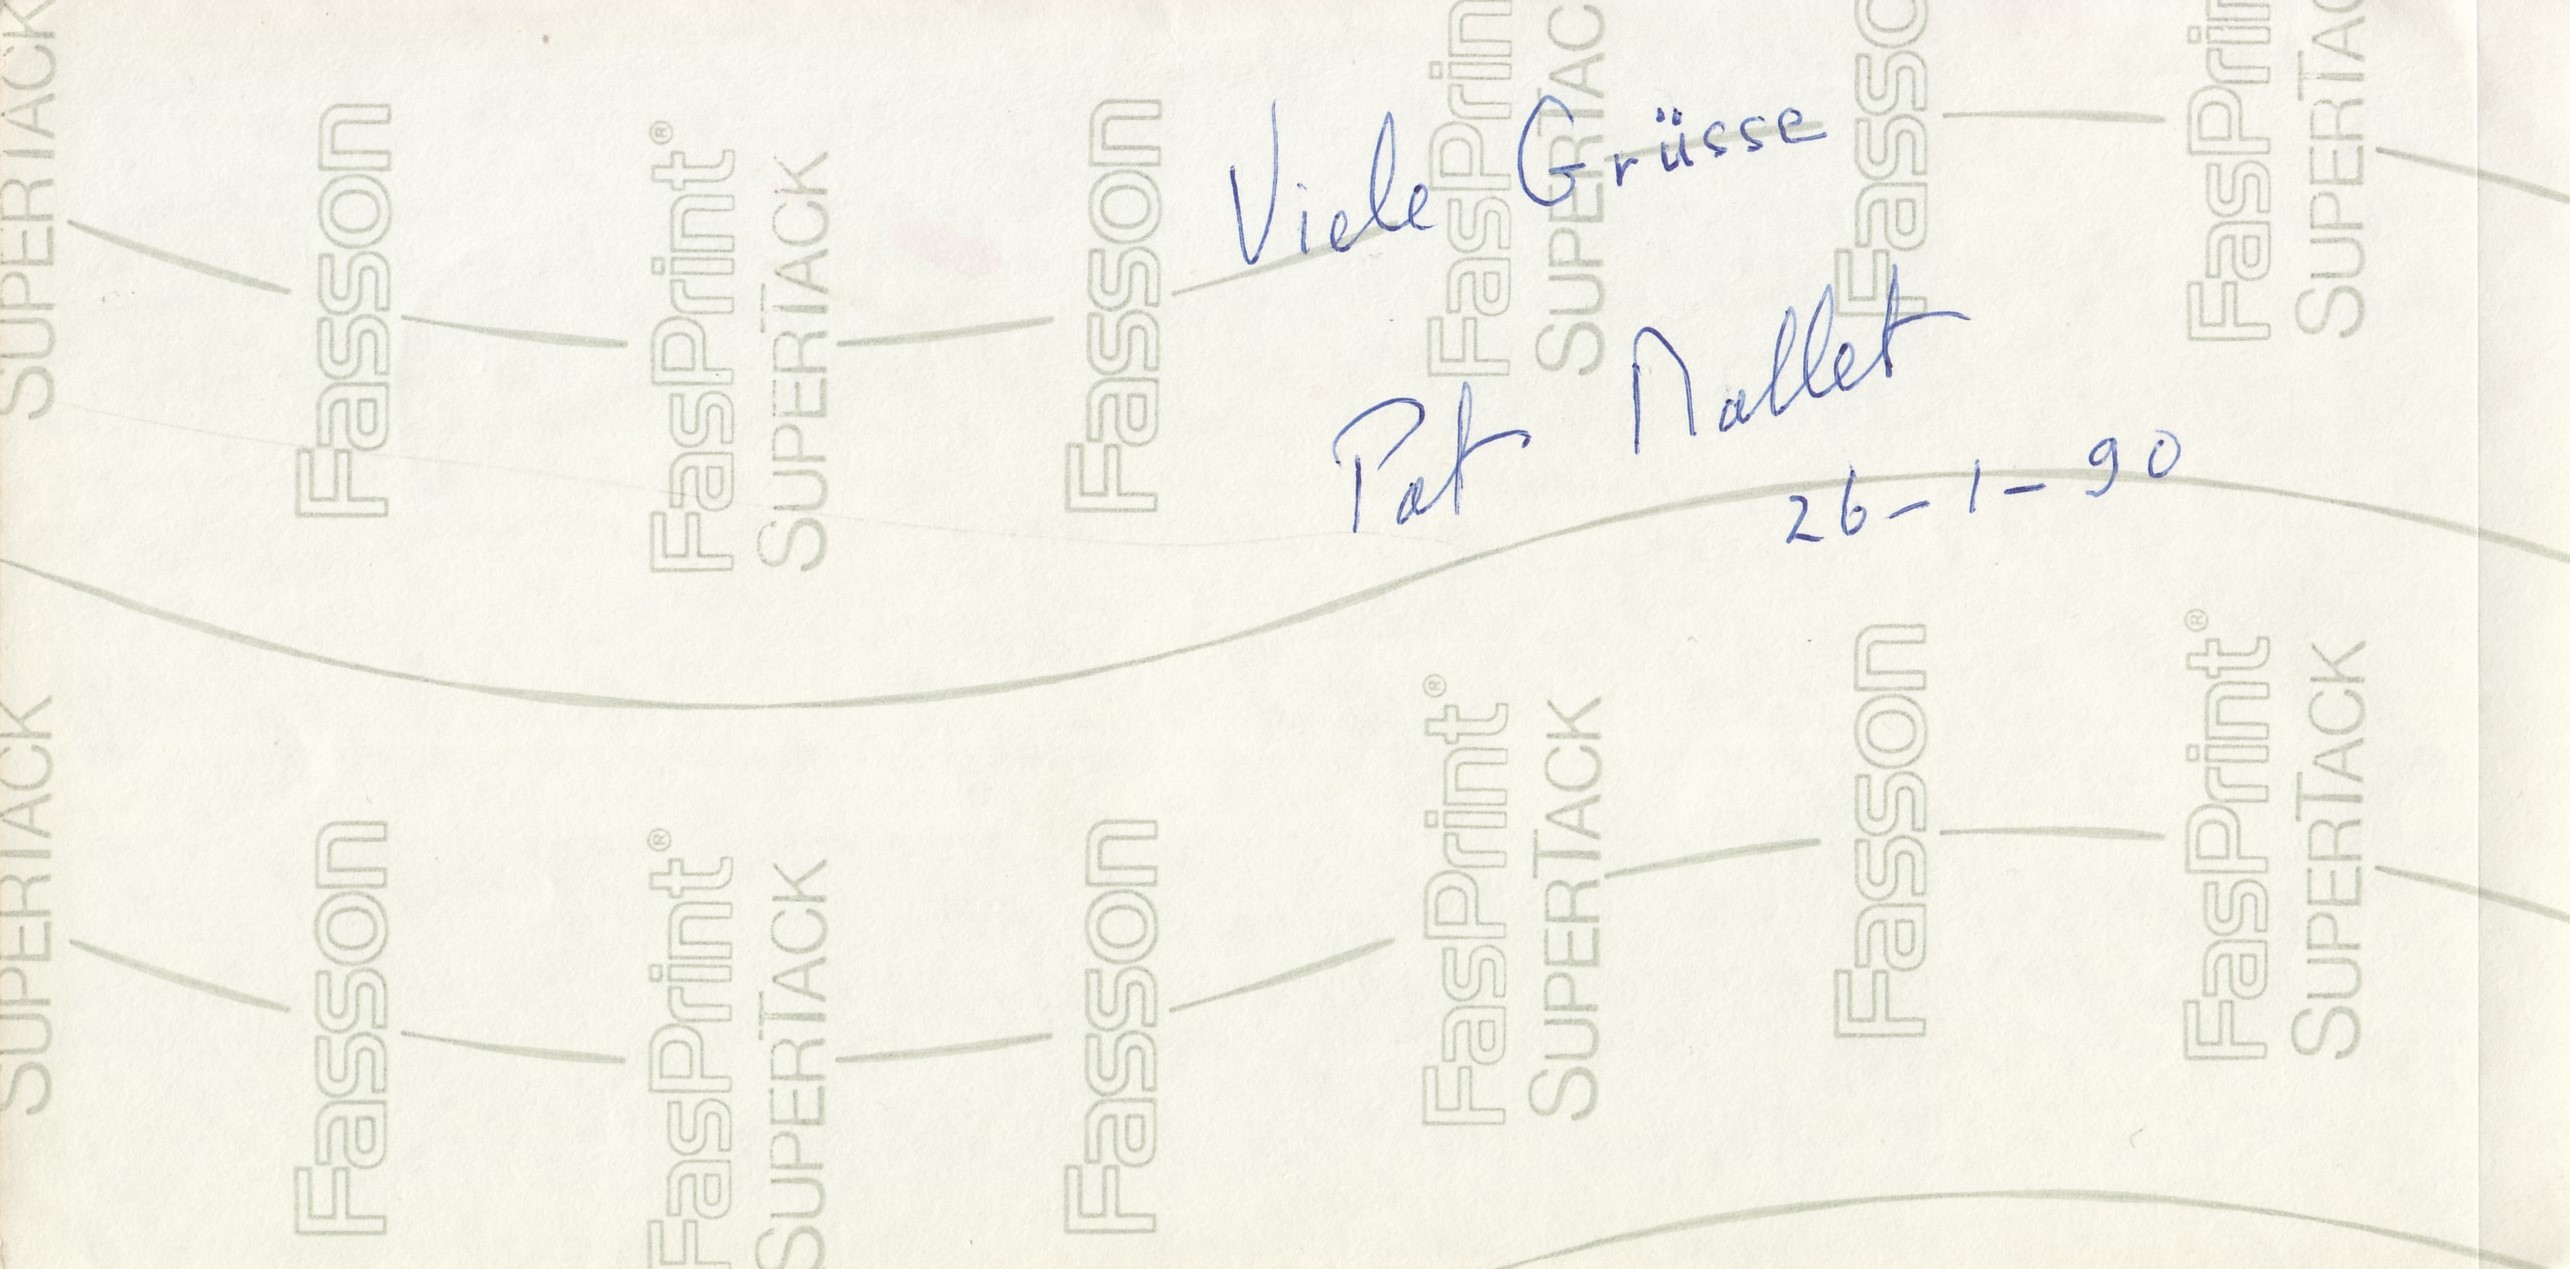 Viele Grüsse
Pat Mallet
26-1-90
SUPERTACK
Fasson
FasPrint®
SUPERTACK
Fasson
FasPrin
SUPERTAC
Fasso
FasPrin
SUPERTAC
SUPERTACK
Fasson
FasPrint®
SUPERTACK
Fasson
FasPrint®
SUPERTACK
Fasson
FasPrint®
SUPERTACK